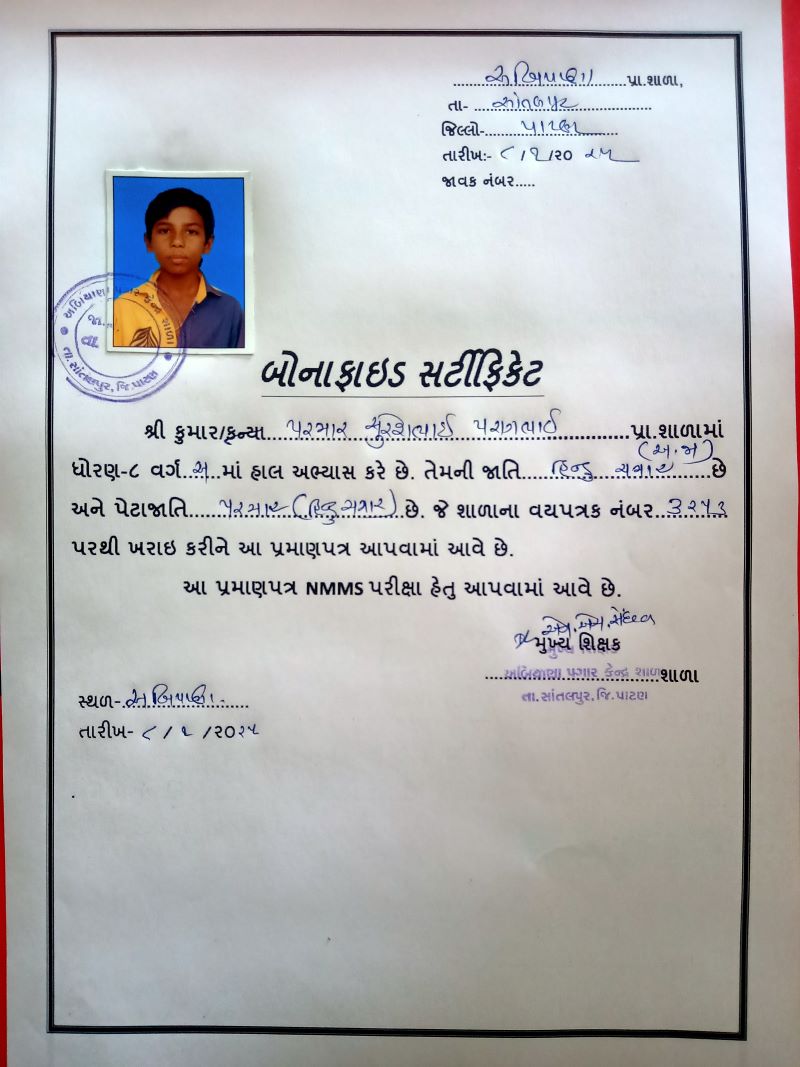 અબિયાણા પ્રા.શાળા,
તા- સાંતલપુર
જિલ્લો- પાટણ
તારીખ:- ૮/૧/૨૦ ૨૫
જાવક નંબર.....
અબિયાણા પગાર કેન્દ્ર શાળા
તા.સાંતલપુર, જિ.પાટણ
બોનાફાઇડ સર્ટીફિકેટ
શ્રી કુમાર/કન્યા પરમાર સુરેશભાઈ પ્રા.શાળામાં
(અ.જા)
ધોરણ-૮ વર્ગ અ માં હાલ અભ્યાસ કરે છે. તેમની જાતિ હિન્દુ છે
અને પેટાજાતિ પરમાર (હિન્દુ) છે. જે શાળાના વયપત્રક નંબર ૩૨૫૩
પરથી ખરાઇ કરીને આ પ્રમાણપત્ર આપવામાં આવે છે.
આ પ્રમાણપત્ર NMMS પરીક્ષા હેતુ આપવામાં આવે છે.
મુખ્ય શિક્ષક
અબિયાણા પગાર કેન્દ્ર શાળા શાળા
તા.સાંતલપુર, જિ.પાટણ
સ્થળ- અબિયાણા.
તારીખ- ૮/૧/૨૦૨૫